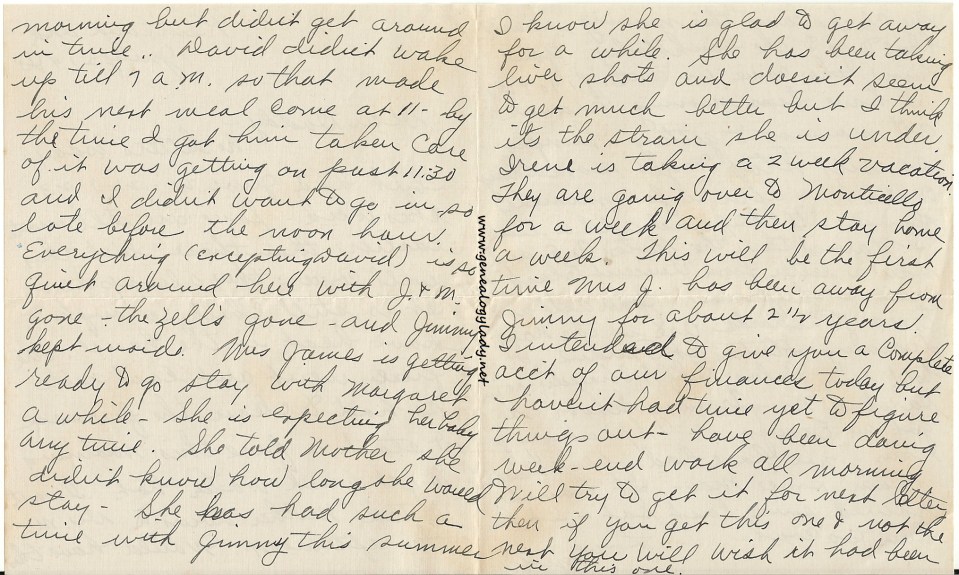 morning but didn't get around
in time.. David didn't wake
up till 7 a.m. so that made
his next meal come at 11 - by
the time I got him taken care
of it was getting on past 11:30
and I didn't want to go in so
late before the noon hour.
Everything (excepting David) is so
quiet around here with J. & M.
gone - the Zell's gone - and Jimmy
kept inside. Mrs James is getting
ready to go stay with Margaret
a while - She is expecting her baby
any time. She told Mother she
didn't know how long she would
stay - She has had such a
time with Jimmy this summer
I know she is glad to get away
for a while. She has been taking
liver shots and doesn't seem
to get much better but I think
its the strain she is under.
Irene is taking a 2 week vacation.
They are going over to Monticello
for a week and then stay home
a week. This will be the first
time Mrs J. has been away from
Jimmy for about 2 1/2 years.
I intended to give you a complete
acct of our finances today but
haven't had time yet to figure
things out - have been doing
week-end work all morning
Will try to get it for next letter
then if you get this one & not the
next you will wish it had been
in this one.
www.genealogylady.net